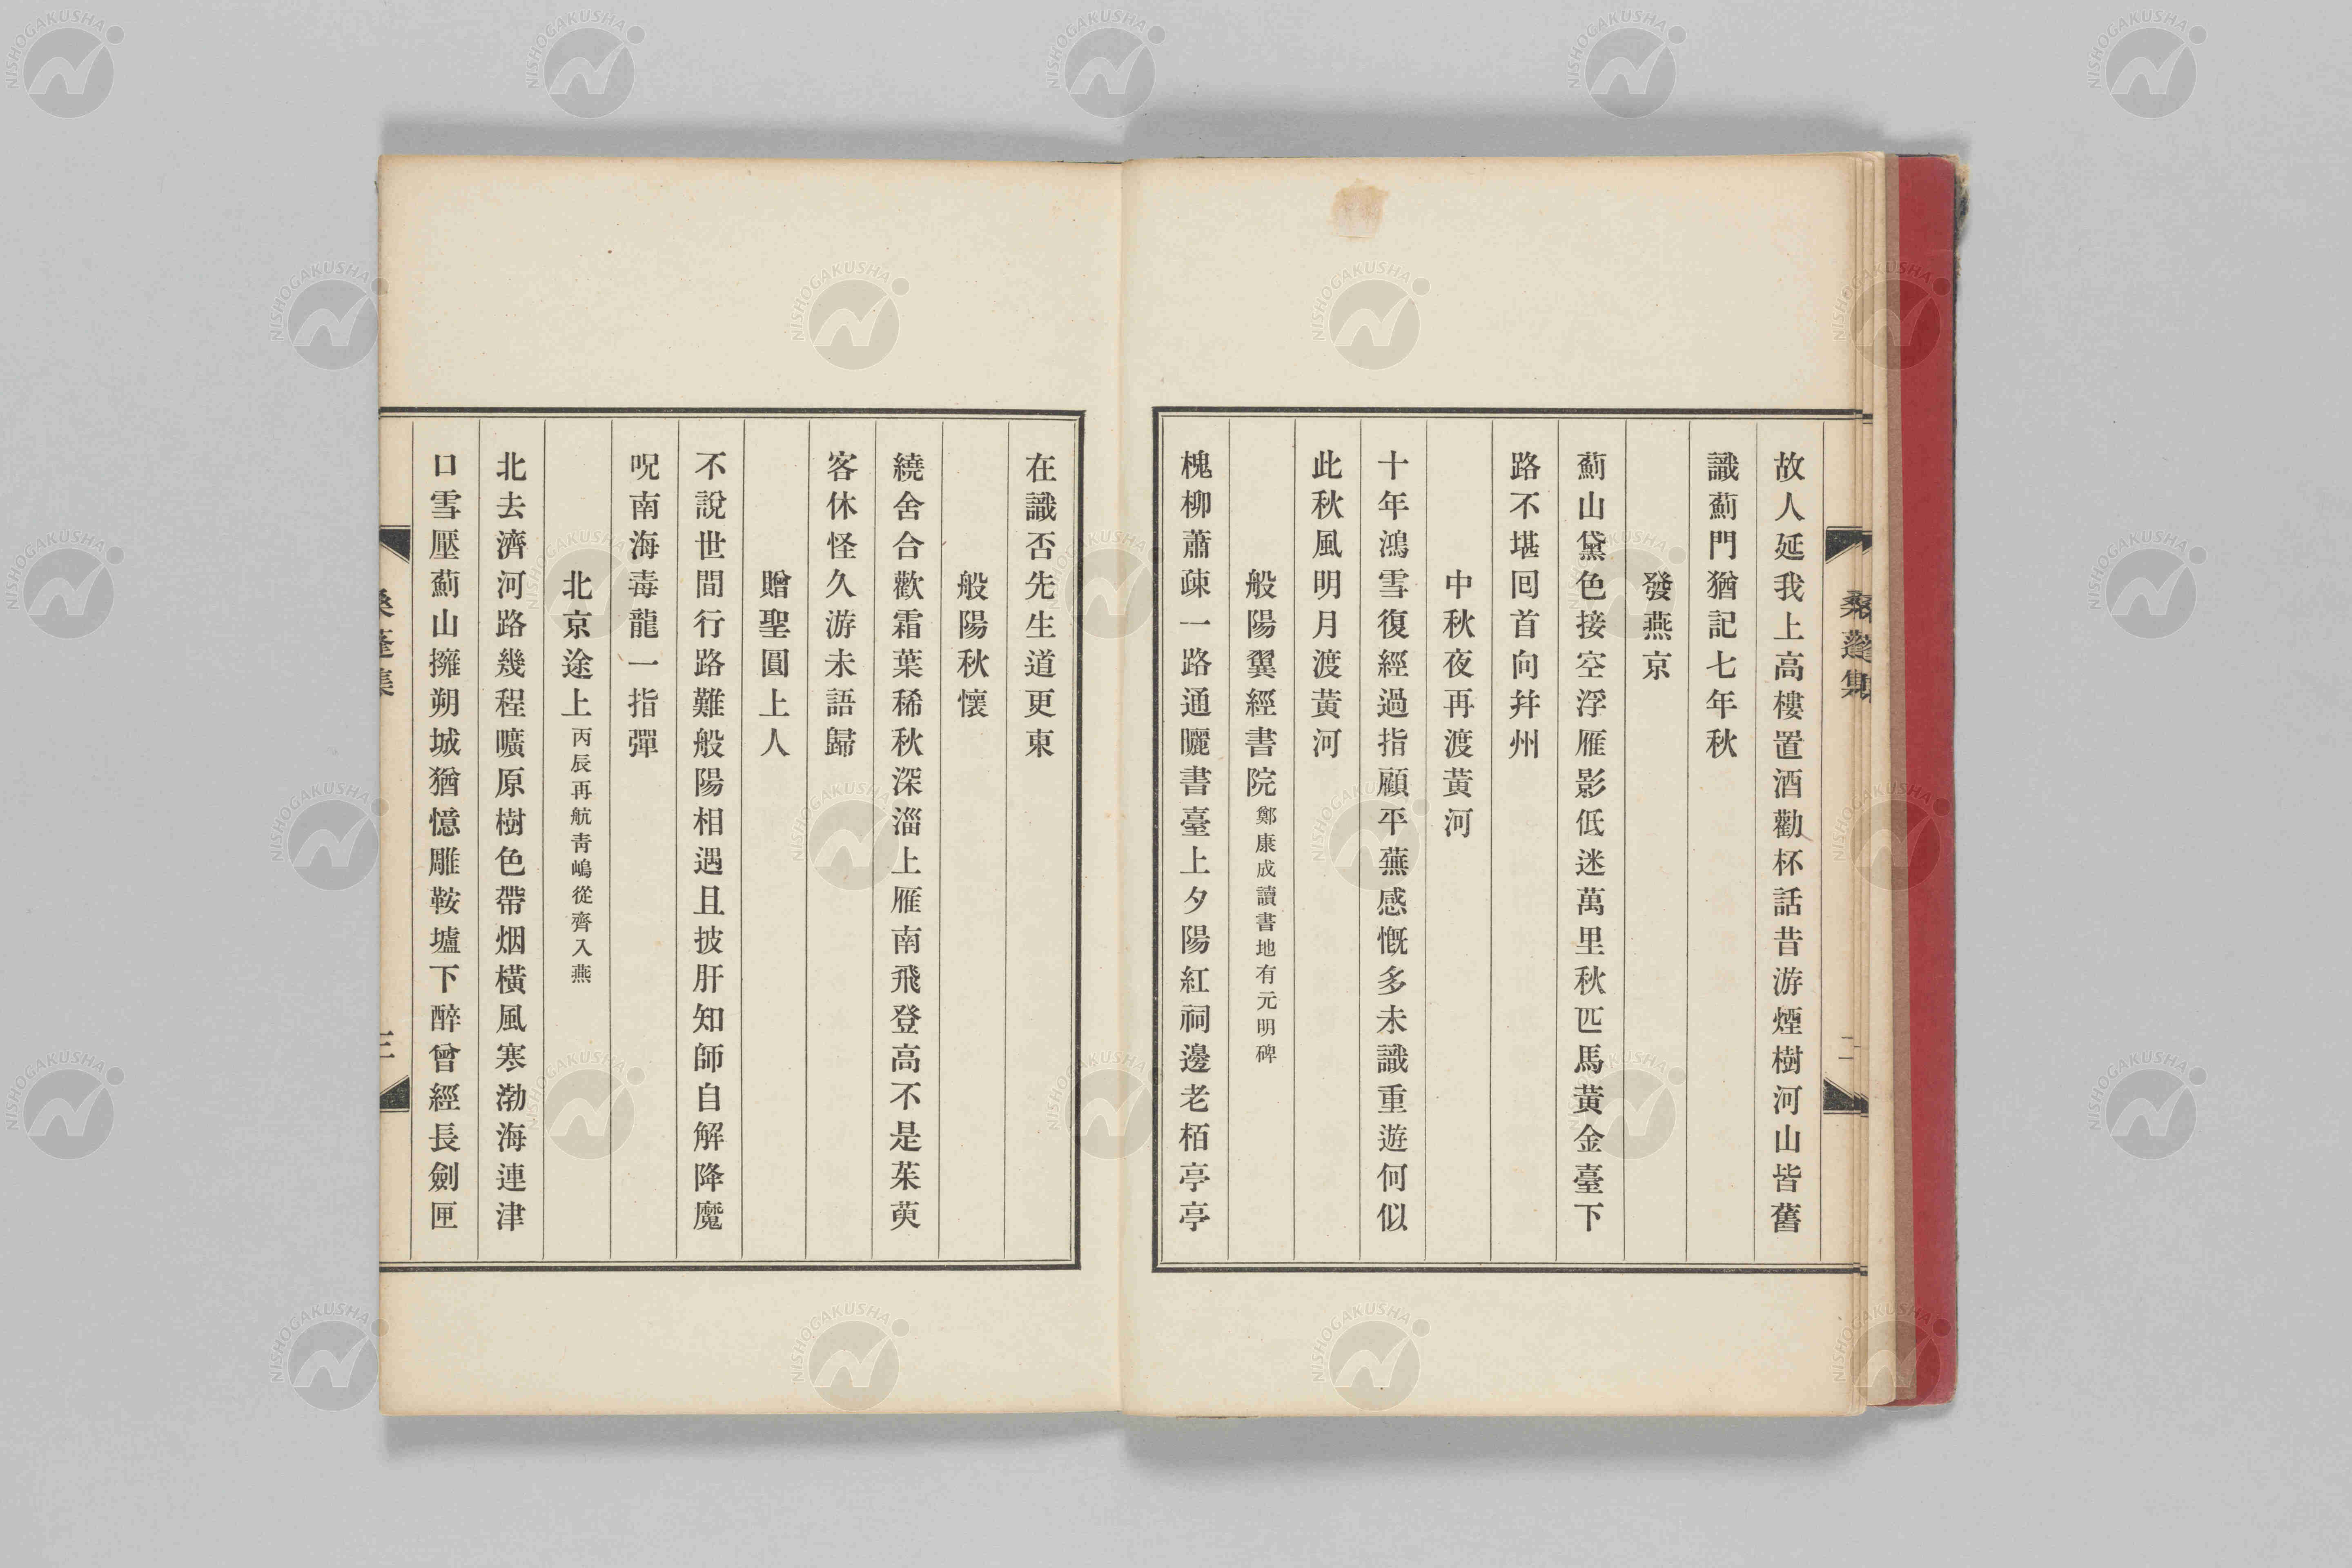 桑蓬集
二
故人延我上高樓置酒勸杯話昔游煙樹河山皆舊
識薊門猶記七年秋
發燕京
薊山黛色接空浮雁影低迷萬里秋匹馬黃金臺下
路不堪回首向幷州
中秋夜再渡黃河
十年鴻雪復經過指顧平蕪感慨多未識重遊何似
此秋風明月渡黃河
般陽翼經書院鄭康成讀書地有元明碑
槐柳蕭疎一路通曬書臺上夕陽紅祠邊老栢亭亭
在識否先生道更東
般陽秋懷
繞舍合歡霜葉稀秋深淄上雁南飛登高不是茱萸
客休怪久游未語歸
贈聖圓上人
不說世間行路難般陽相遇且披肝知師自解降魔
呪南海毒龍一指彈
北京途上丙辰再航靑嶋從齊入燕
北去濟河路幾程曠原樹色帶烟橫風寒渤海連津
口雪壓薊山擁朔城猶憶雕鞍壚下醉曾經長劍匣
桑蓬集
三
NISHOGAKUSHA